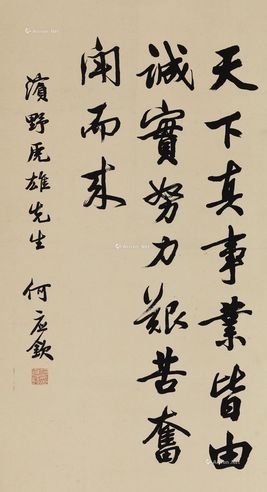 天下真事業皆由
誠實努力艱苦奮
鬥而来
濱野虎雄先生 何應欽